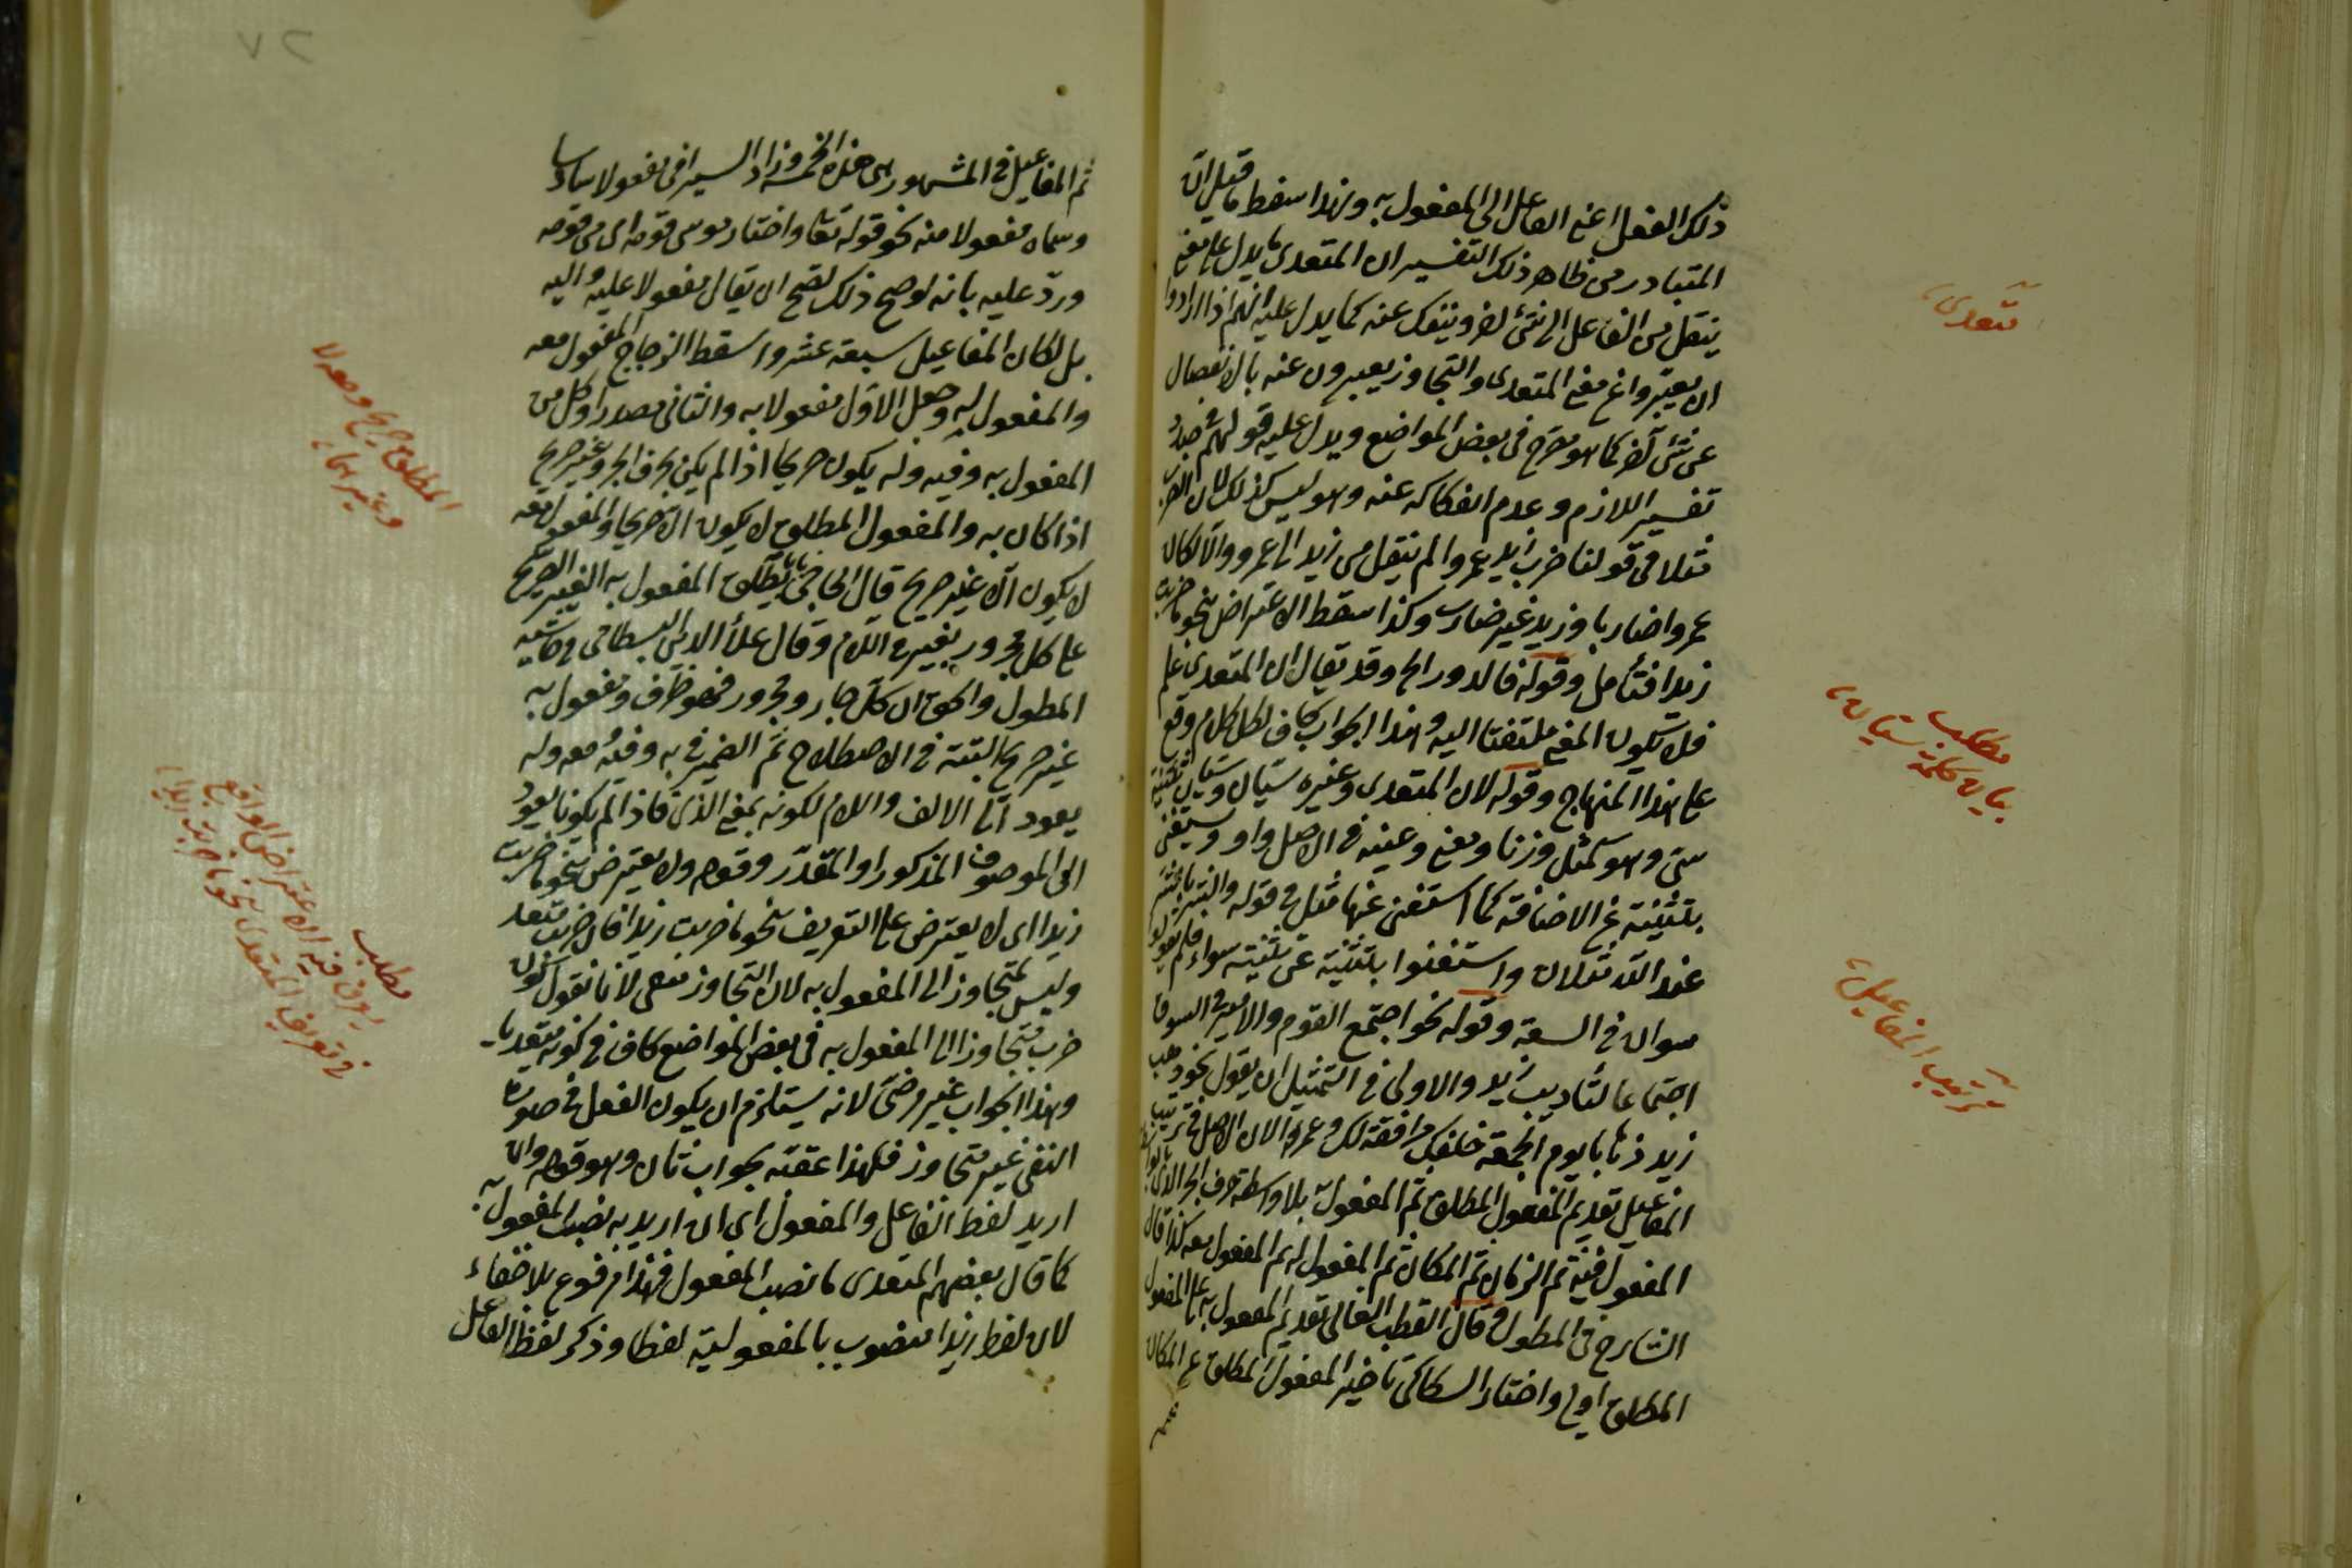 ذلك الفعل اعنى الفاعل الى المفعول به وبهذا سقط ما قيل ان
المتبادر من ظاهر ذلك التفسير ان المتعدى ما يدل على معنى
ينتقل من الفاعل الى شئ آخر وينفك عنه كما يدل عليه انهم اذا ارادوا
ان يعبروا عن معنى المتعدى والتجاوز يعبرون عنه بالانفصال
عن شئ آخر كما هو مصرح فى بعض المواضع ويدل عليه قولهم فى
تفسير اللازم وعدم انفكاكه عنه وهو ليس كذلك لان الضرب
مثلا فى قولنا ضرب زيد عمروا لم ينتقل من زيد الى عمرو والا لكان
عمروا ضاربا وزيد غير ضارب وكذا سقط الاعتراض بنحو ما ضربت
زيدا فتأمل وقوله فالدور الخ وقد يقال ان المتعدى علم
فلا يكون المعنى ملتفتا اليه وهذا الجواب كاف لكل كلام وقع
على هذا المنهاج وقوله لان المتعدى وغيره سيان وسيان تثنية
سى وهو كمثل وزنا ومعنى وعينه فى الاصل واو وستغنى
بتثنيته عن الاضافة كما استغنى عنها مثل فى قوله والشر بالشر
عند الله مثلان واستغنوا بتثنيته عن تثنية سواء فلم يقولوا
سوان فى السعة وقوله نحو اجتمع القوم والامير فى السوق
اجتماعا لتأديب زيد والاولى فى التمثيل ان يقول نحو ذهب
زيد ذهابا يوم الجمعة خلفك موافقة لك وعمروا لان الاصل فى ترتيب
المفاعيل تقديم المفعول المطلق ثم المفعول به بلا واسطة حرف الجر
المفعول فيه ثم الزمان ثم المكان ثم المفعول له ثم المفعول معه كذا قال
الشارح فى المطول وقال القطب العالى تقديم المفعول به على المفعول
المطلق اولى واختار السكاكى تأخير المفعول المطلق عن المكان
تتعدى
مطلب
بيان كلمة سيان
ترتيب المفاعيل
٧٢
ثم المفاعيل فى المشهور هى هذه الخمسة وزاد السيرافى مفعولا سادسا
وسماه مفعولا منه نحو قوله تعا واختار موسى قومه اى من قومه
ورد عليه بانه لو صح ذلك لصح ان يقال مفعولا عليه واليه
بل لكان المفاعيل سبعة عشر واسقط الزجاج المفعول معه
والمفعول له وجعل الاول مفعولا به والثانى مصدرا وكل من
المفعول به وفيه وله يكون صريحا اذا لم يكن بحرف الجر وغير صريح
اذا كان به والمفعول المطلق لا يكون الا صريحا والمفعول معه
لا يكون الا غير صريح قال الحاجى بابا يطلق المفعول به الغير الصريح
على كل مجرور بغير فى اللام وقال علاء الدين البسطامى فى حاشية
المطول والحق ان كل جار ومجرور فهو ظرف ومفعول به
غير صريح البتة فى الاصطلاح ثم الضمير فى به وفيه ومعه وله
يعود الى الالف واللام لكونه بمعنى الذى فاذا لم يكونا يعود
الى الموصوف المذكور او المقدر وقوله ولا يعترض بنحو ما ضربت
زيدا اى لا يعترض على التعريف بنحو ما ضربت زيدا فان ضربت متعد
وليس بمتجاوز الى المفعول به لان التجاوز منفى لانا نقول كون
ضرب متجاوزا الى المفعول به فى بعض المواضع كاف فى كونه متعديا
وهذا الجواب غير مرضى لانه يستلزم ان يكون الفعل فى صورة
النفى غير متجاوز فلهذا عقبه بجواب ثان وهو قوله وان
اريد لفظ الفاعل والمفعول اى ان اريد به نصب المفعول به
كما قال بعضهم المتعدى ما نصب المفعول فهذا مرفوع بلا خفاء
لان لفظ زيدا منصوب بالمفعولية لفظا وذكر لفظ الفاعل
المطلق صريح ومعه لا
مطلب
يعرف فيه الاعتراض الواقع
فى تعريف المتعدى بنحو ما ضربت زيدا